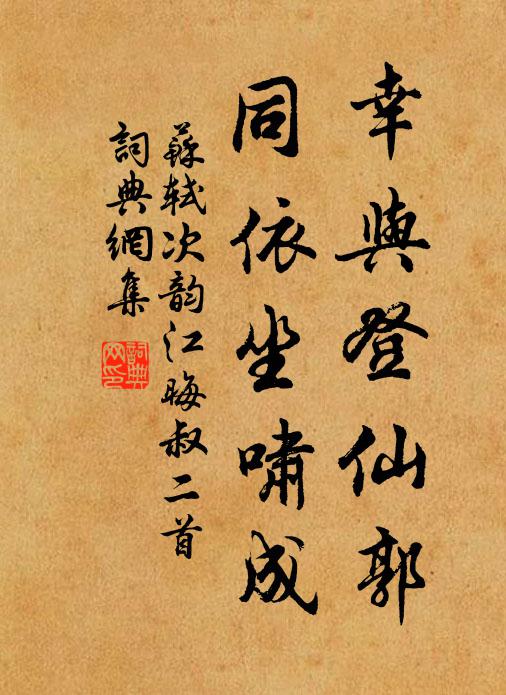 幸與登仙郭
同依坐嘯成
蘇軾次韵江晦叔二首
詞典網集
詞典網印